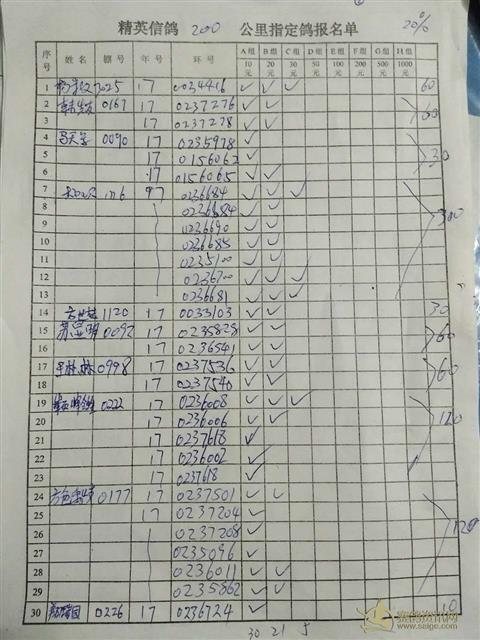 精英信鸽 200 公里指定鸽报名单 20%
序号 姓名 棚号 年号 环号 A组 10元 B组 20元 C组 30元 D组 50元 E组 100元 F组 200元 G组 500元 H组 1000元
1 7025 17 0034416 ✓ ✓ ✓ 60
2 0167 17 0237276 ✓ ✓ 60
3 17 0237278 ✓ ✓
4 0090 17 0235978 ✓
5 17 0156062 ✓ 30
6 17 0156065 ✓ ✓
7 0236684 ✓ ✓ ✓ 300
8 0236684 ✓ ✓
9 0236690 ✓ ✓
10 0236685 ✓ ✓
11 0235100 ✓ ✓
12 0236700 ✓ ✓ ✓
13 0236681 ✓ ✓ ✓
14 1120 17 0033103 ✓ ✓ 30
15 0092 17 0235828 ✓ ✓ 60
16 17 0236541 ✓ ✓
17 0998 17 0237536 ✓ ✓ 60
18 17 0237540 ✓ ✓
19 0222 17 0236008 ✓ ✓ ✓
20 17 0236006 ✓ ✓ 120
21 17 0237618 ✓
22 17 0236002 ✓
23 17 0237618 ✓
24 0177 17 0237501 ✓ ✓
25 17 0237204 ✓
26 0237208 ✓ 120
27 0235096 ✓
28 0236011 ✓ ✓
29 0235862 ✓ ✓
30 0226 17 0236724 ✓ 10
30 21 5
赛鸽资讯网
www.saige.com